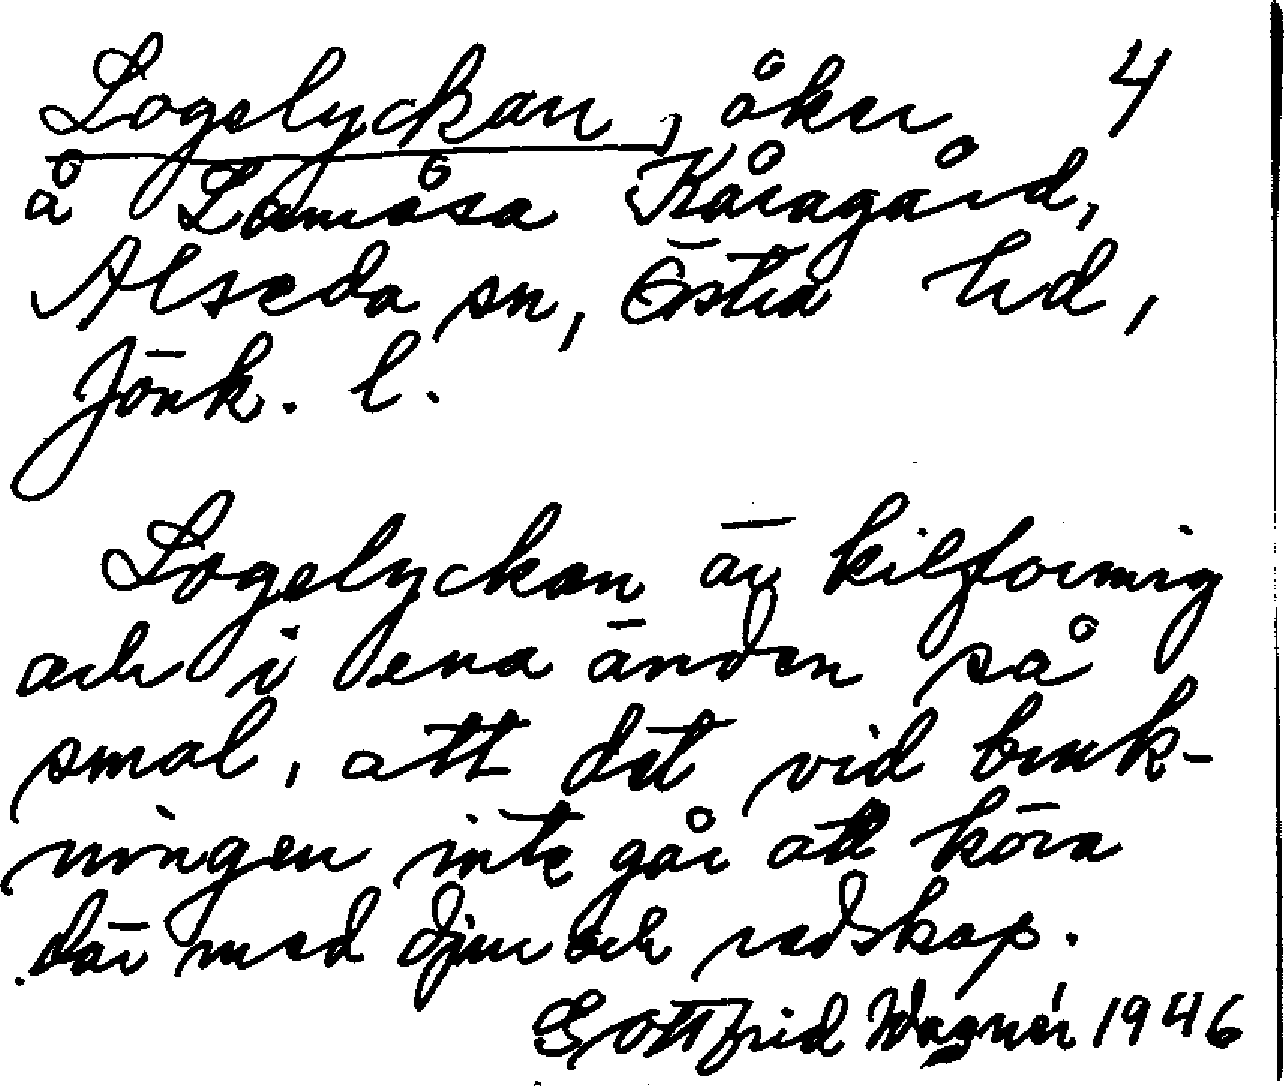 Logelyckan, åker 4
å Lamåsa Kåragård,
Alseda sn, Östra hd,
Jönk. l.
Logelyckan är kilformig
och i ena änden så
smal, att det vid bruk-
ningen inte går att köra
där med djur och redskap.
Gottfrid Wagnér 1946